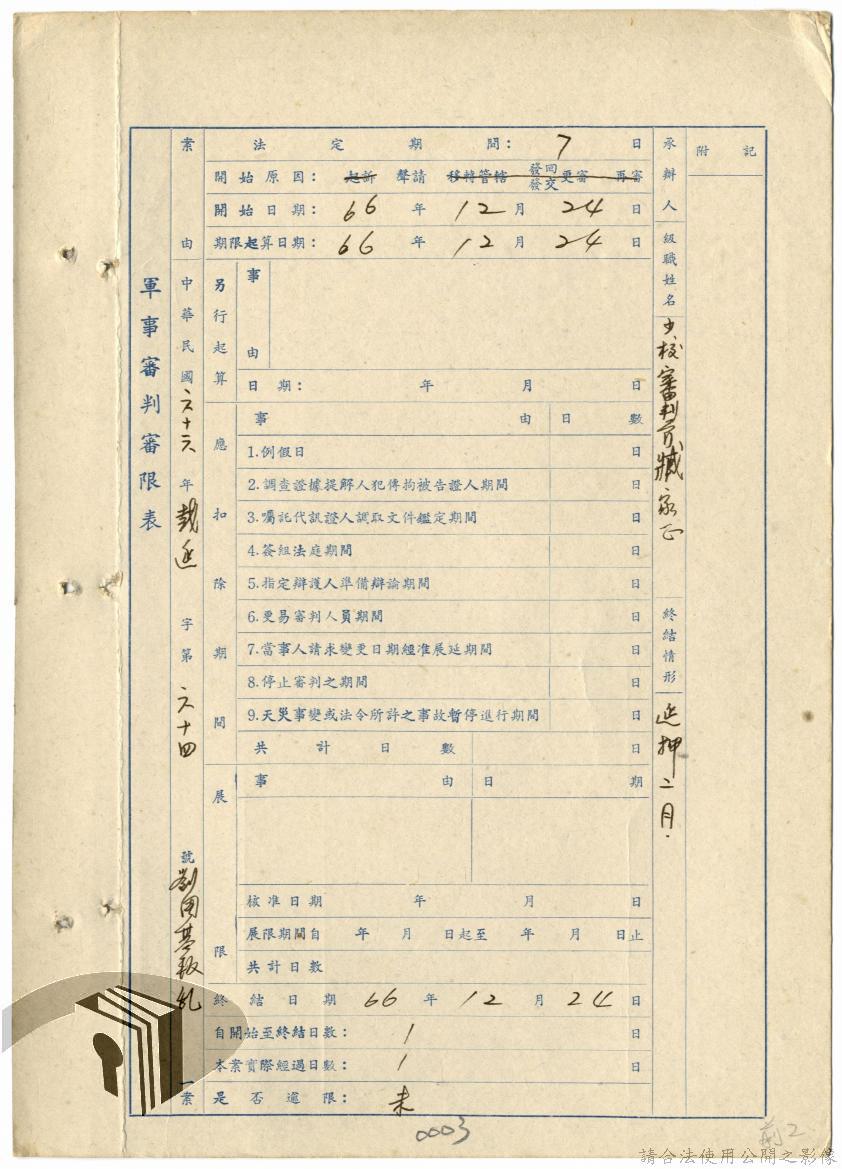 軍事審判審限表
案由 中華民國六十六年裁延字第六十四號劉國基叛亂一案
法定期間： 7 日
開始原因： 起訴 聲請 移轉管轄 發回發交更審 再審
開始日期： 66 年 12 月 24 日
期限起算日期： 66 年 12 月 24 日
另行起算
事由
日期： 年 月 日
應扣除期間
事由 日數
1.例假日 日
2.調查證據提解人犯傳拘被告證人期間 日
3.囑託代訊證人調取文件鑑定期間 日
4.簽組法庭期間 日
5.指定辯護人準備辯論期間 日
6.更易審判人員期間 日
7.當事人請求變更日期經准展延期間 日
8.停止審判之期間 日
9.天災事變或法令所許之事故暫停進行期間 日
共計日數 日
展限
事由 日期
核准日期 年 月 日
展限期間自 年 月 日起至 年 月 日止
共計日數
終結日期 66 年 12 月 24 日
自開始至終結日數： 1 日
本案實際經過日數： 1 日
是否逾限： 未
承辦人級職姓名 少校審判官臧家正
終結情形 延押二月.
附記
0003
請合法使用公開之影像